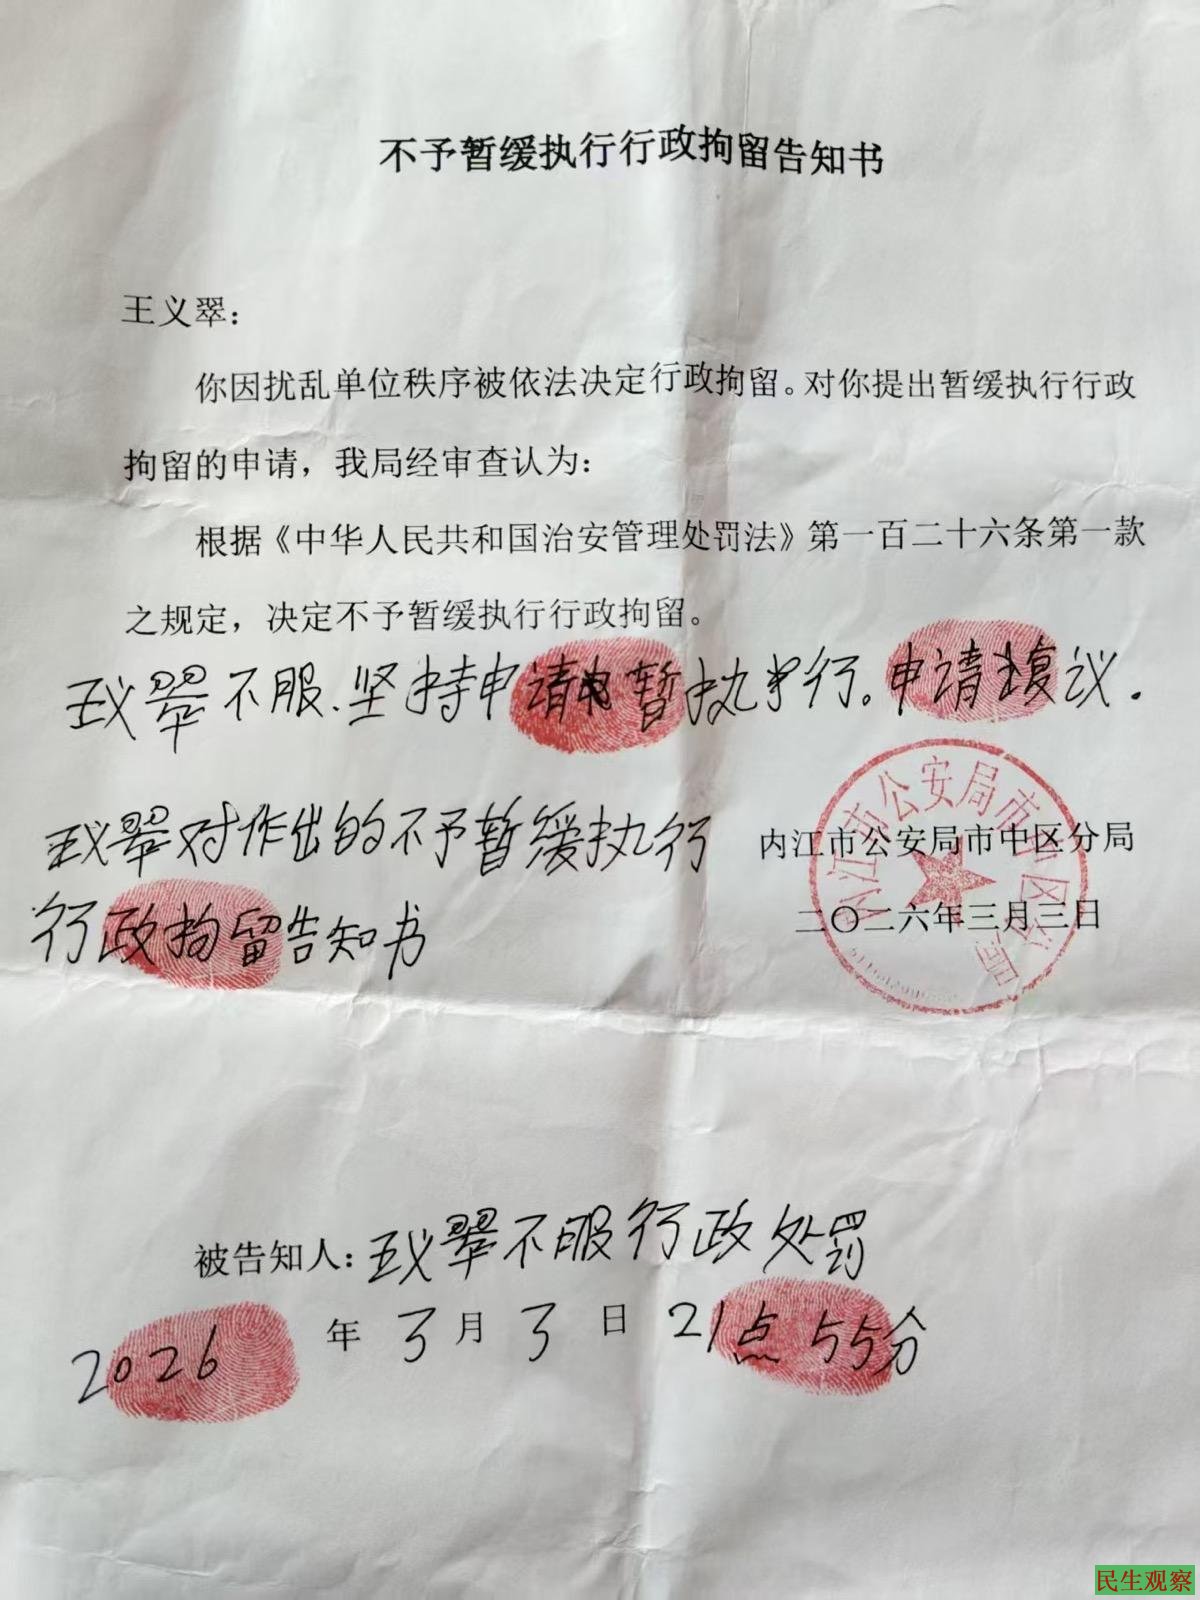 不予暂缓执行行政拘留告知书
王义翠：
你因扰乱单位秩序被依法决定行政拘留。对你提出暂缓执行行政
拘留的申请，我局经审查认为：
根据《中华人民共和国治安管理处罚法》第一百二十六条第一款
之规定，决定不予暂缓执行行政拘留。
王义翠不服、坚持申请暂执行。申请复议．
内江市公安局市中区分局
王义翠对作出的不予暂缓执行
内江市公安局市中区分局
二〇二六年三月三日
行政拘留告知书
被告知人：王义翠不服行政处罚
2026年3月3日21点55分
民生观察